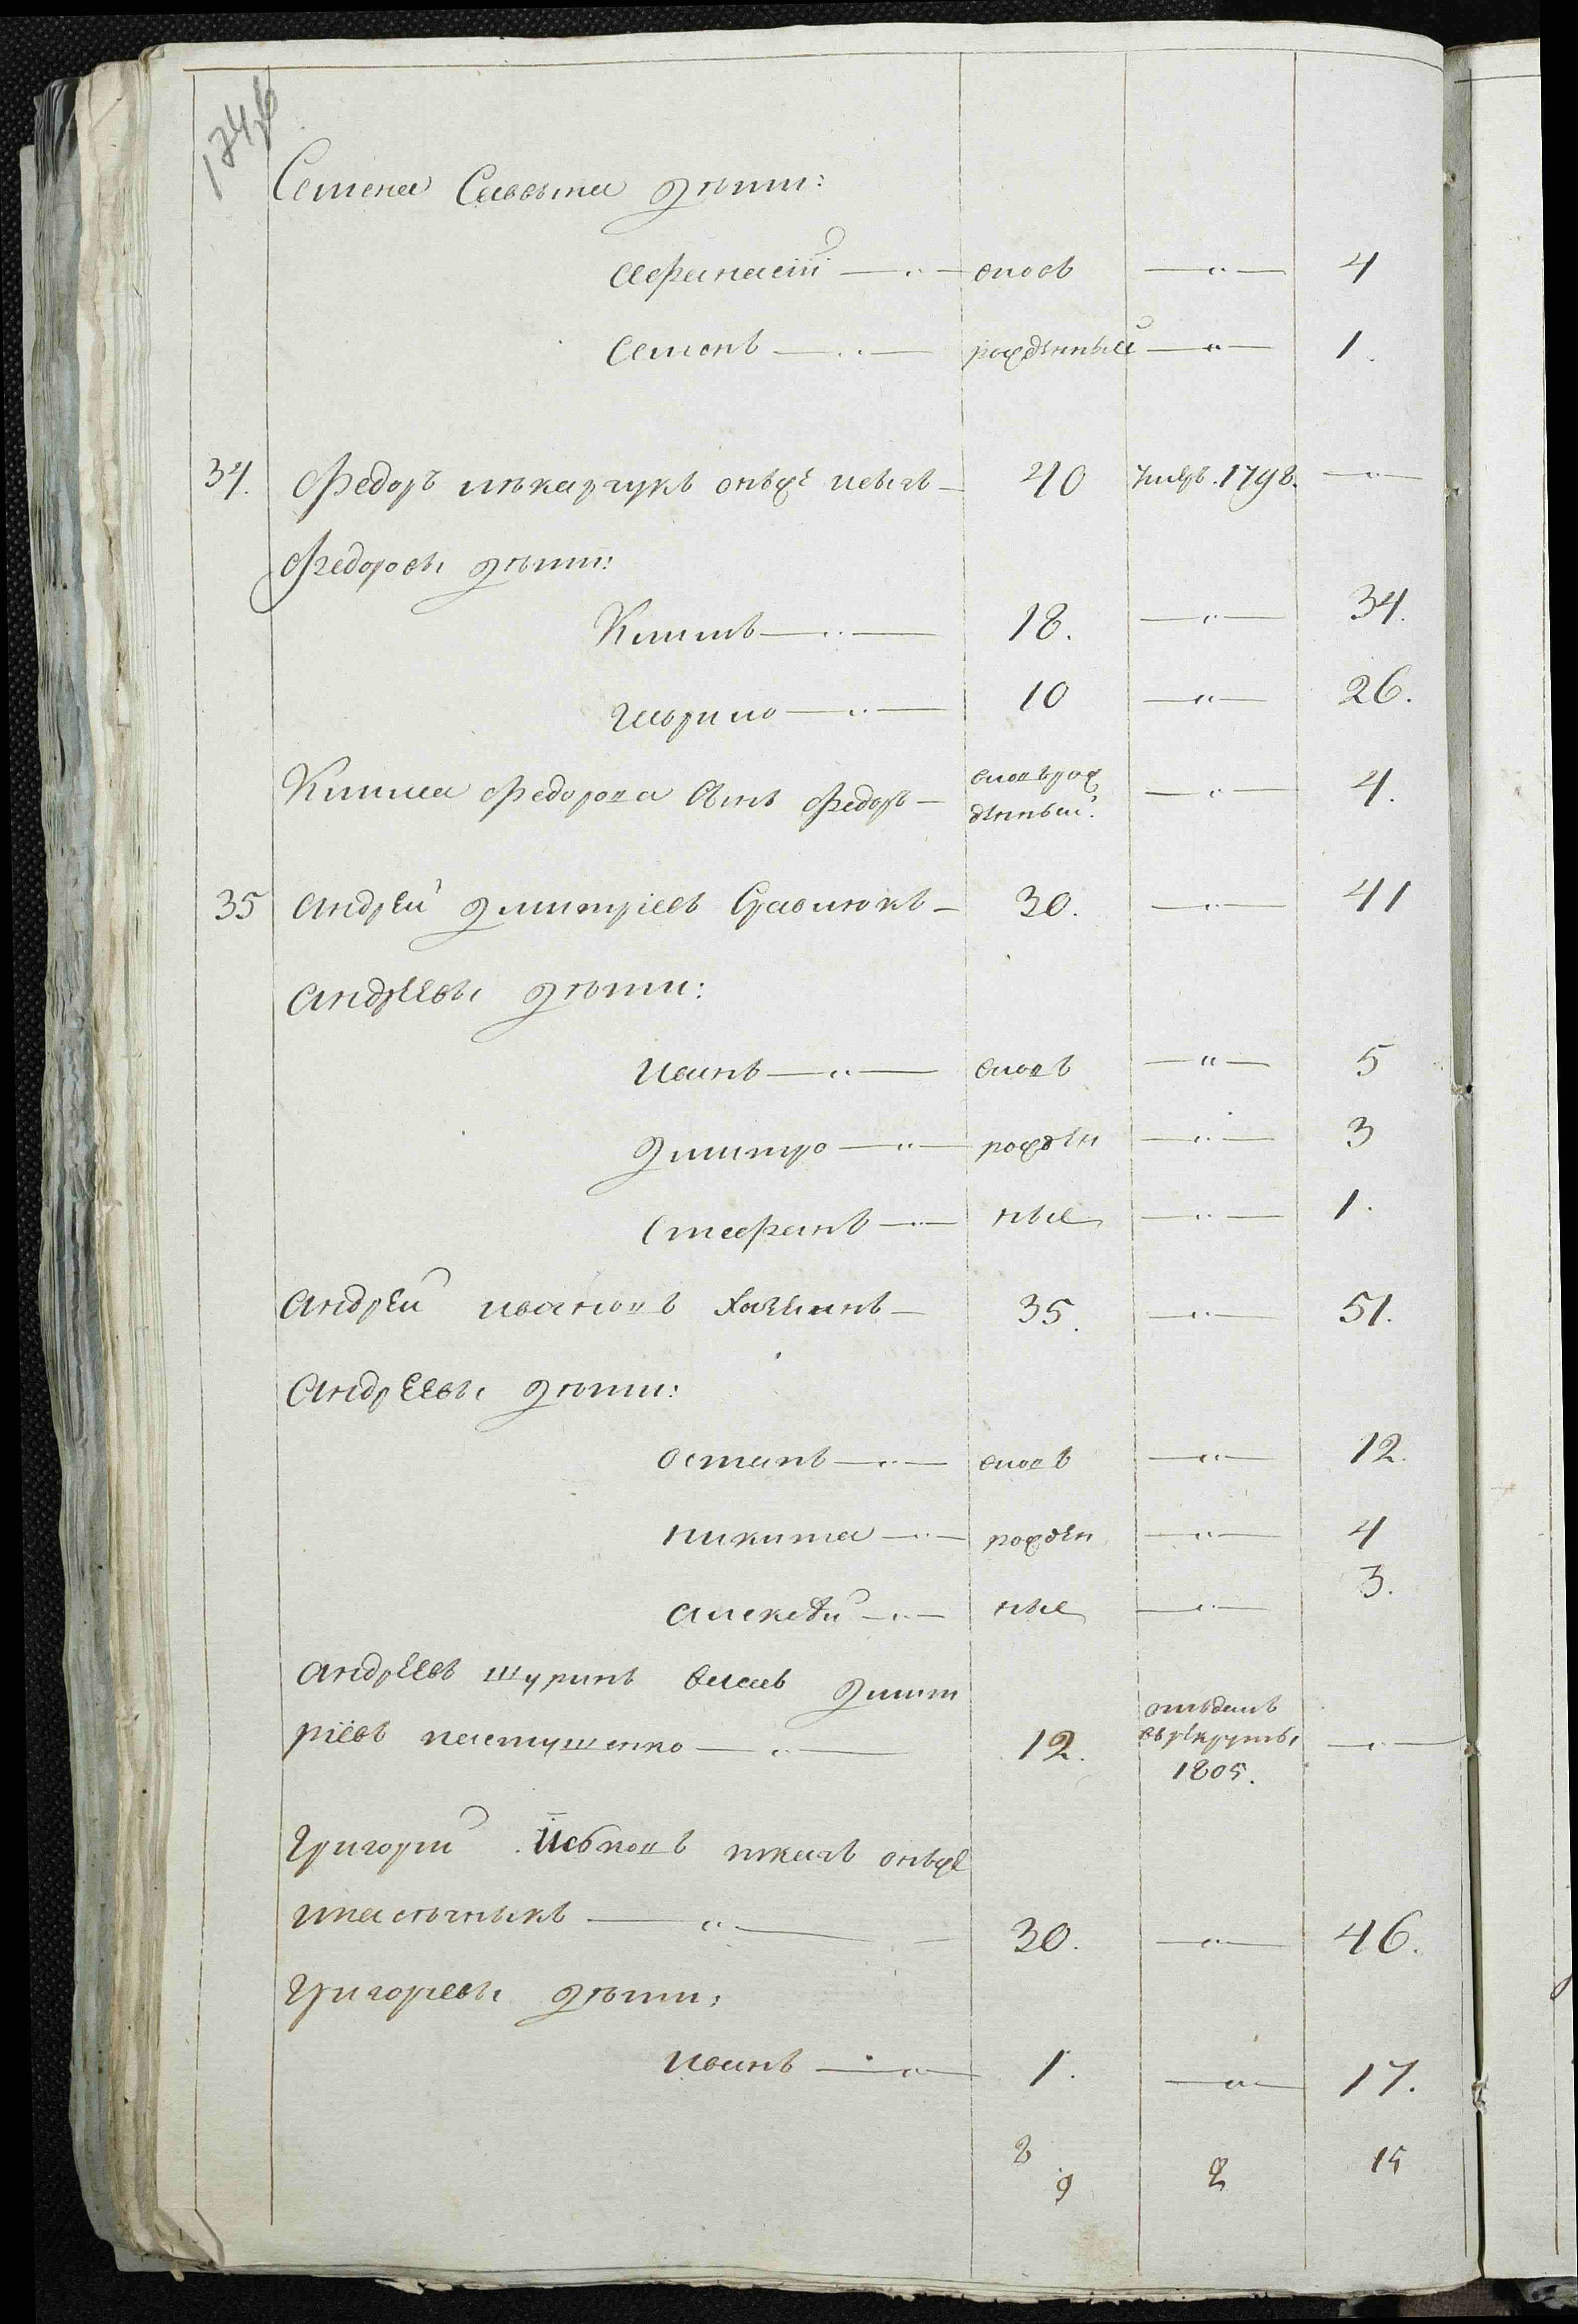 Семена Саввина дѣти:
Афанасій — „ — вновь — „ — 4
Семенъ — „ — рожденный — „ — 1.
34. Федоръ онъже — 40 умеръ. 1798. — „ —
Федоровы дѣти:
Климъ — „ — 18. — „ — 34.
Гаврило — „ — 10 — „ — 26.
Клима Федорова сынъ Федоръ — вновьрож
денный. — „ — 4.
35 Андрей Дмитріевъ — 30. — „ — 41
Андрѣевы дѣти:
Иванъ — „ — вновь — „ — 5
Дмитро — „ — рожден — „ — 3
Стефанъ — „ — ные — „ — 1.
Андрей Ивановъ — 35. — „ — 51.
Андрѣевы дѣти:
Остапъ — „ — вновь — „ — 12.
Никита — „ — рожден — „ — 4
Алексѣй — „ — ные — „ — 3.
Андрѣевъ шуринъ Власъ Дмит
ріевъ Пастушенко — „ — 12. отъданъ
въ рекруты
1805. — „ —
Григорій ткачъ онъже
Ипасѣчныкъ — „ — 30. — „ — 46.
Григорьевы дѣти:
Иванъ — „ — 1. — „ — 17.
8
9 2 15